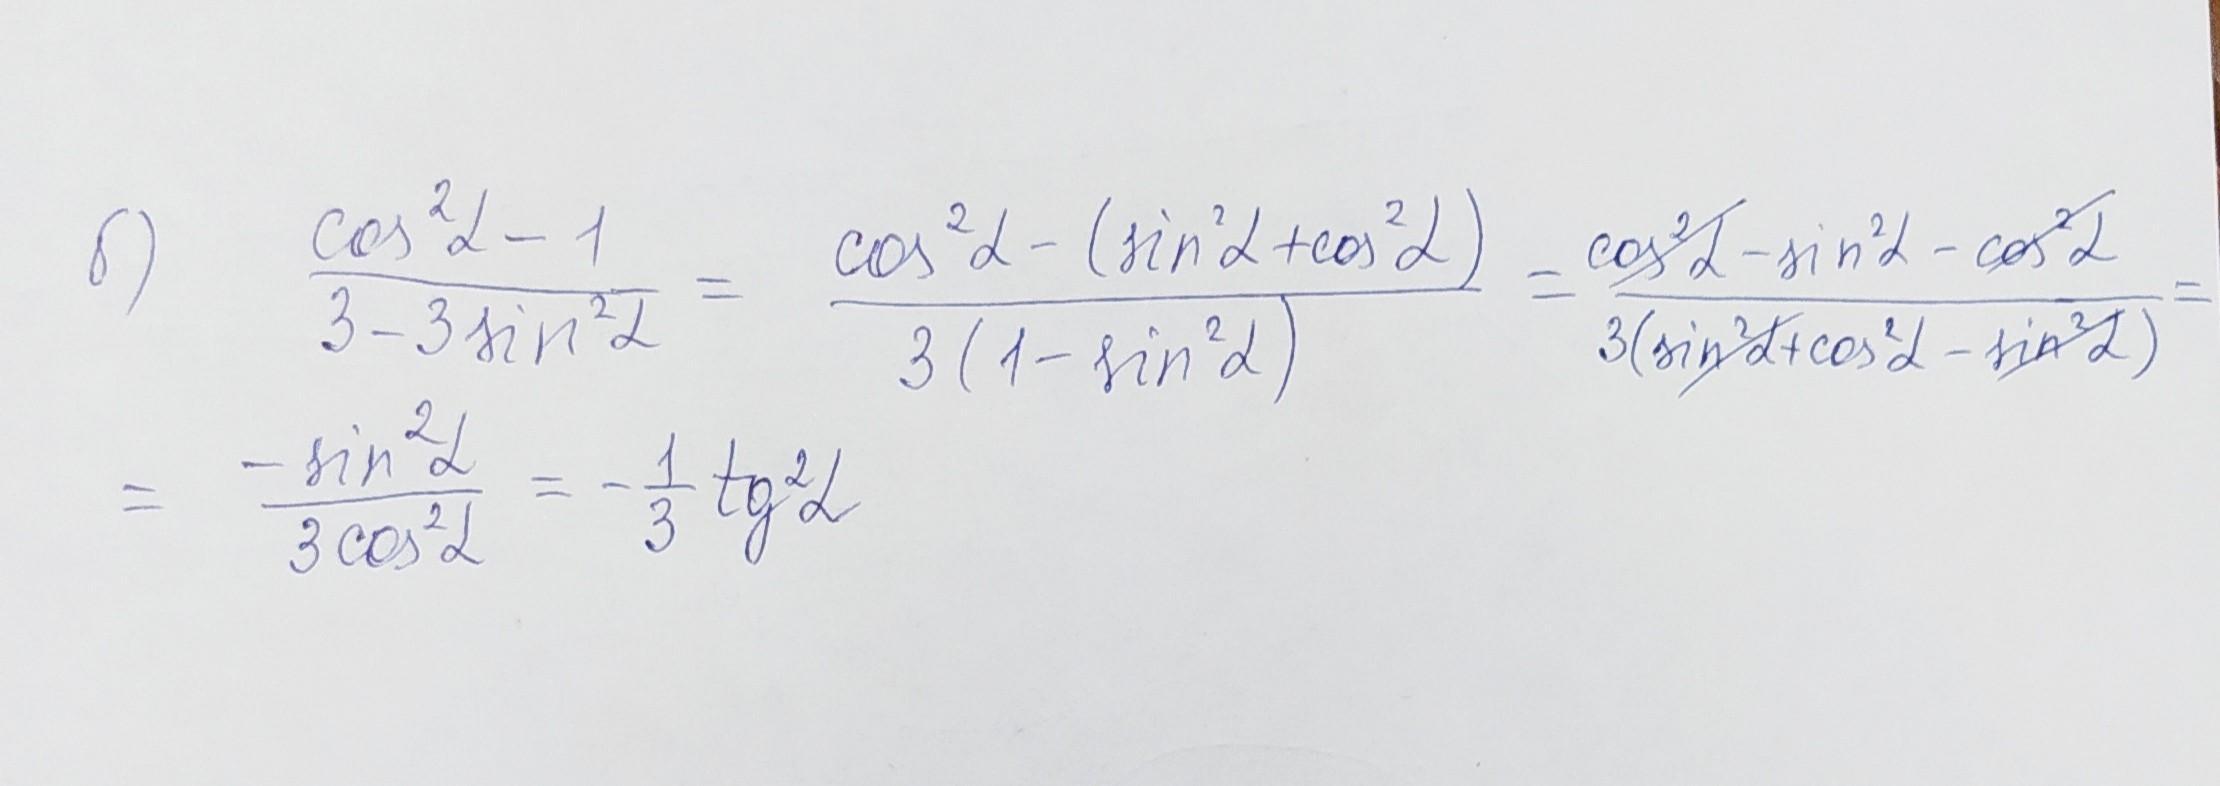 б) (cos²α - 1)/(3 - 3sin²α) = (cos²α - (sin²α + cos²α))/(3(1 - sin²α)) = (cos²α - sin²α - cos²α)/(3(sin²α + cos²α - sin²α)) =
= (-sin²α)/(3cos²α) = -1/3 tg²α